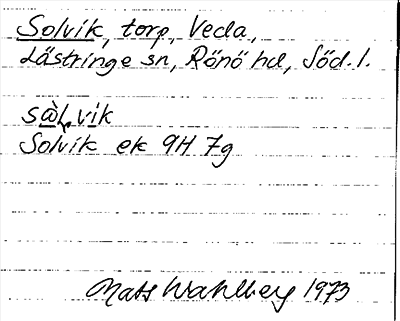 Solvik, torp, Veda,
Lästringe sn, Rönö hd, Söd. l.
sàḷvik
Solvik ek 9H 7g
Mats Wahlberg 1973